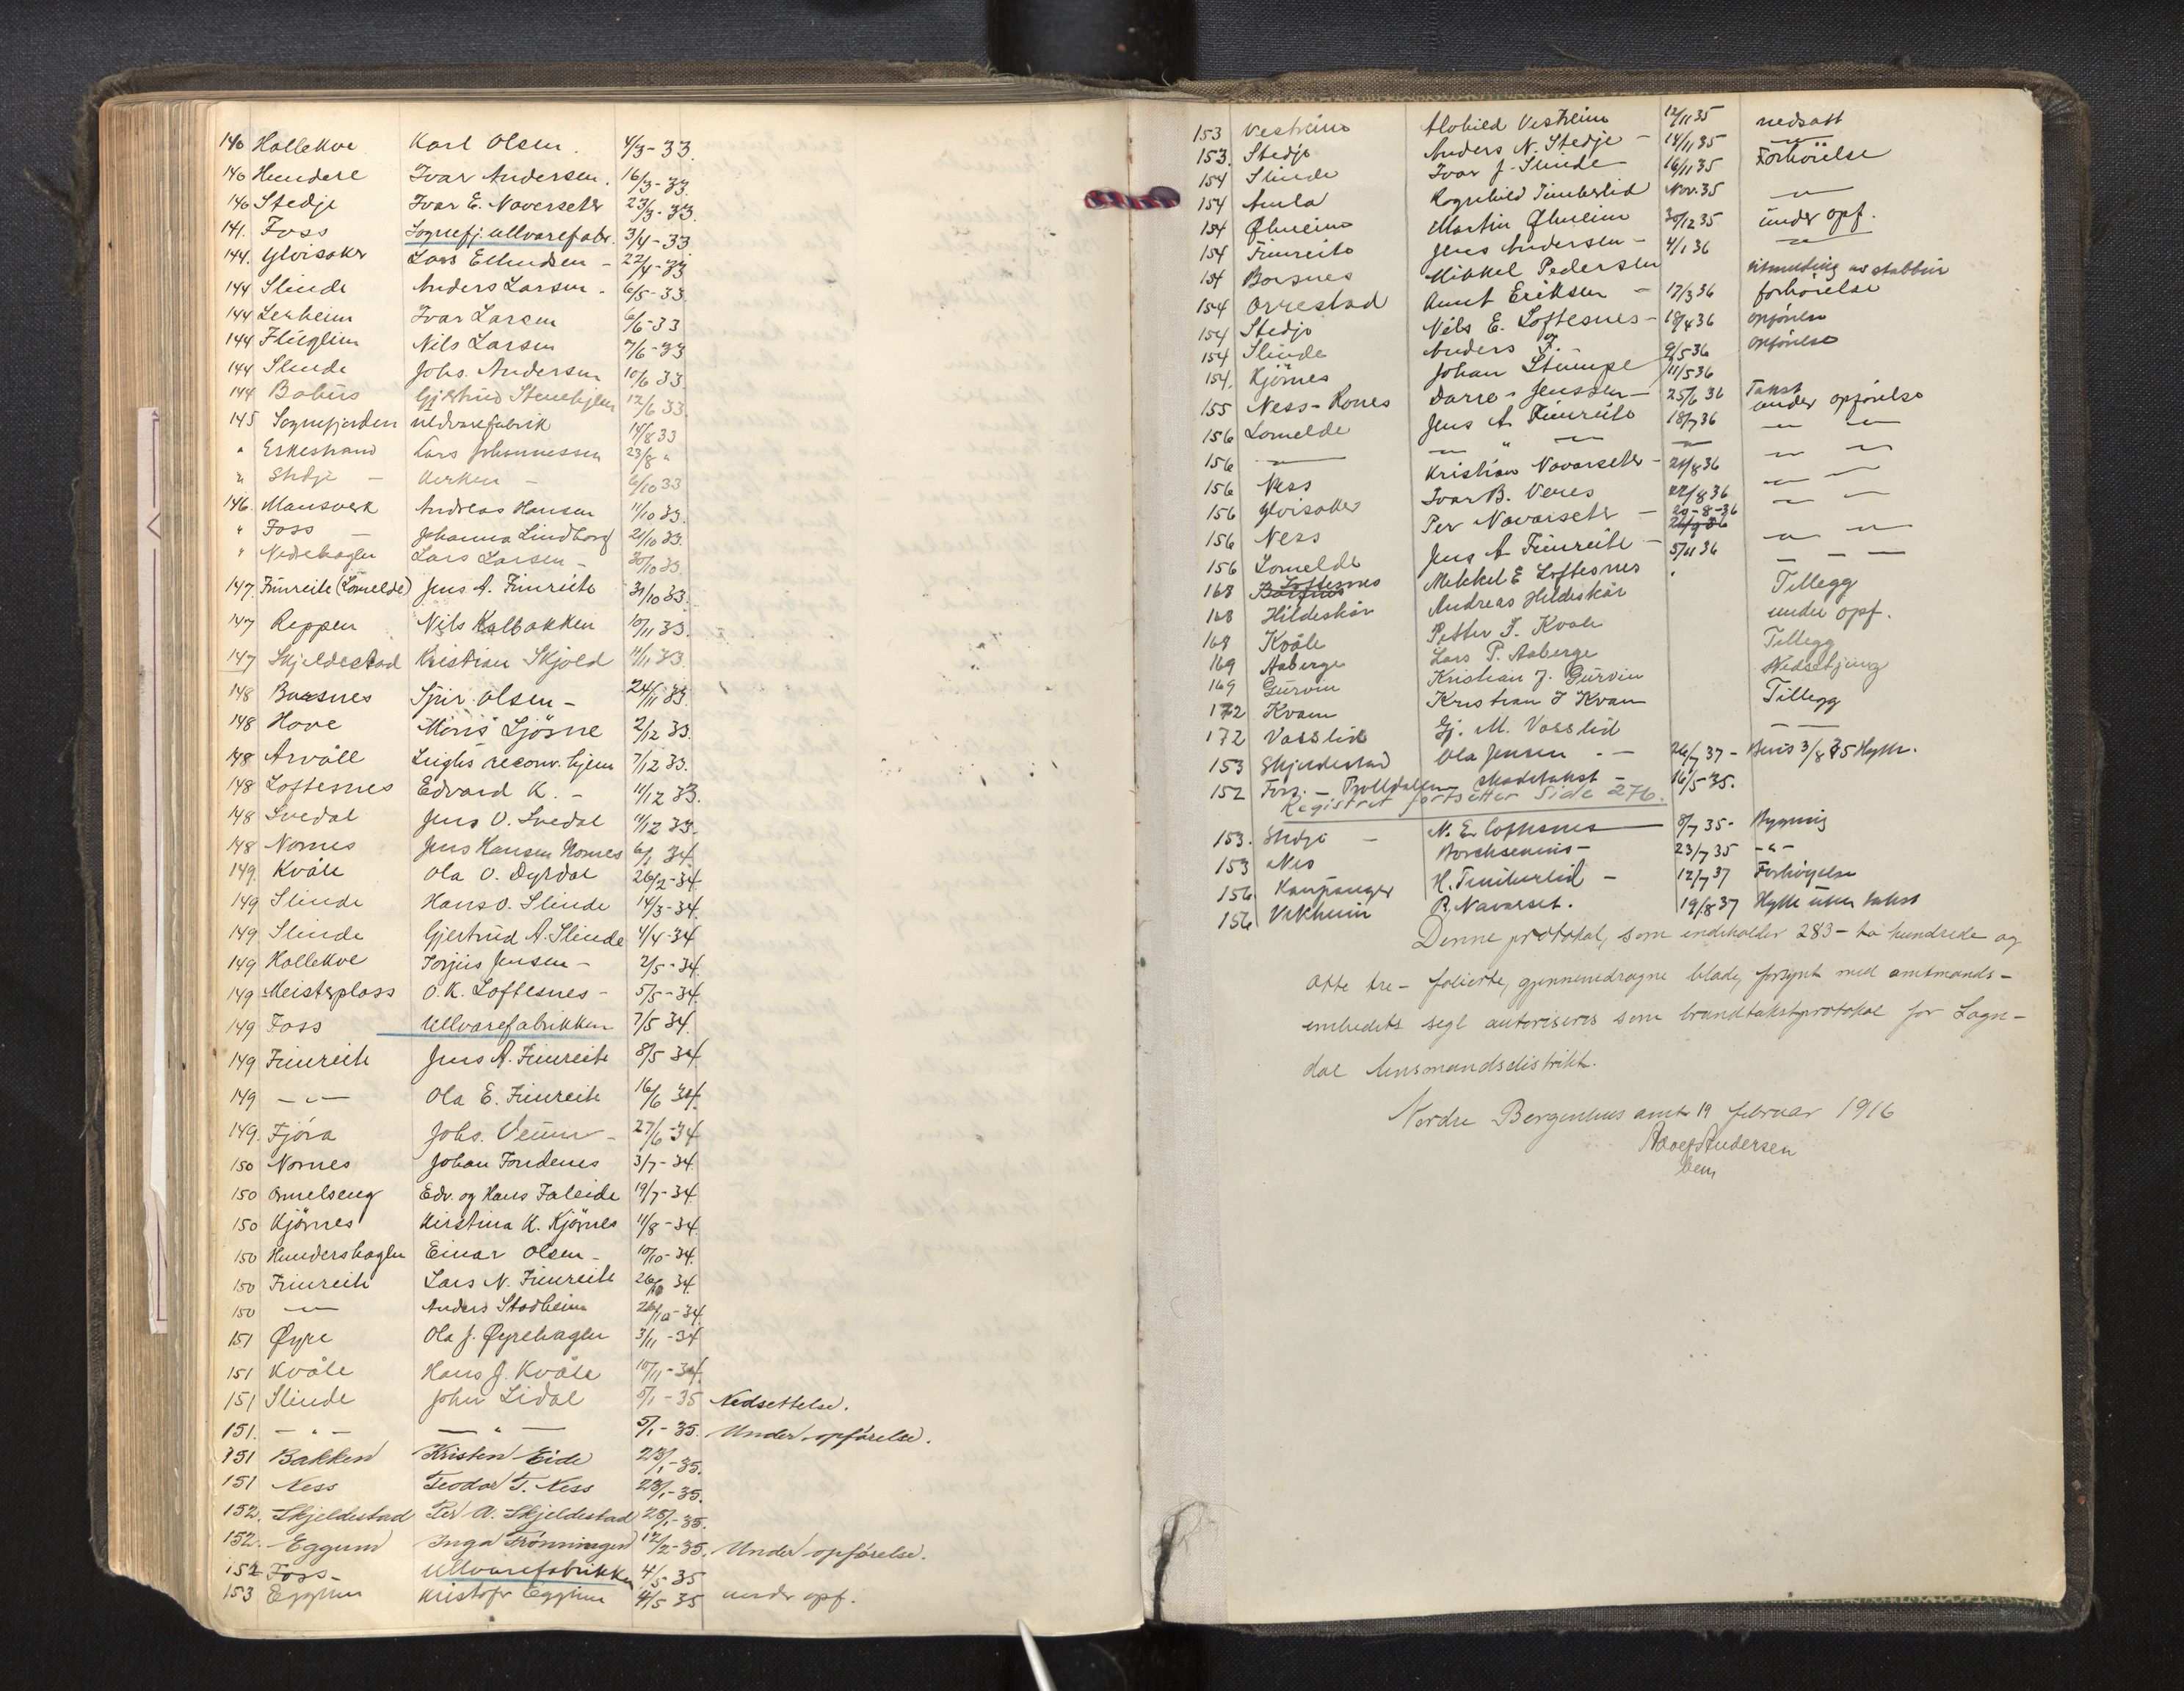 140 Hollekve Karl Olsen. 4/3-33.
140 Hundere Ivar Andersen. 16/3-33.
140 Stedje Ivar E. Navarseter 23/3-33.
141. Foss Sognefj. ullvarefabr. 3/4-33
144. Ylvisaker Lars Ellendsen - 22/4-33
144 Slinde Anders Larsen. 6/5-33.
144 Lerheim Ivar Larsen 6/6-33
144 Flugheim Nils Larsen 7/6-33
144 Slinde Johs. Andersen 10/6 33.
144 Gjertrud Stenehjem 12/6 33.
145 Sognefjorden ulldvarefabrik 14/8 33
" Eskestrand Lars Johannessen 23/8 "
" Stedje - Kirken - 6/10 33
146. Mansverk Andreas Hansen 11/10 33.
" Foss - Johanna Lindborg 21/10 33.
" Nedrehagen Lars Larsen - 30/10 33.
147. Fimreite (Lomelde) Jens A. Fimreite 31/10 33.
147 Reppen Nils Kalbakken 10/11 33.
147 Skjeldestad Kristian Skjold 11/11 33.
148 Barsnes Spir. Olsen - 24/11 33.
148 Hove Møris Ljøsne 2/12 33.
148 Arvoll Lughs reconv. hjem 7/12 33.
148 Loftesnes Edvard K. - 11/12 33.
148 Svedal Jens O. Svedal 11/12 33.
148 Nornes Jens Hansen Nornes 6/1 34.
149. Kvåle Ola O. Dyrdal 26/2-34.
149 Slinde Hans O. Slinde 14/3-34.
149 Slinde Gjertrud A. Slinde 4/4-34
149 Hollekve Torjus Jensen - 2/5-34.
149 Meisterplass O. K. Loftesnes - 5/5-34.
149 Foss Ullvarefabrikken 7/5 34.
149 Fimreite Jens A. Fimreite 8/5 34.
149 - " - Ola E. Fimreite 16/6 34.
149. Fjøra Johs. Venum - 27/6-34
150 Nornes Johan Fondenes 3/7-34.
150 Ornelseng Edv. og Hans Faleide 19/7-34.
150 Kjörnes Kirstina K. Kjörnes 11/8-34.
150 Hundershagen Einar Olsen - 10/10-34.
150 Fimreite Lars N. Fimreite 26/10 34.
150 - " - Anders Stadheim 26/10-34.
151 Øyre Ola J. Øyrehagen 3/11-34
151 Kvåle Hans J. Kvåle 10/11-34.
151 Slinde John Lidal 5/1-35 Nedsettelse.
151. - " - - " - 5/1-35. Under opførelse.
151 Bakken Kristen Eide 23/1-35.
151 Ness Teodor T. Ness 23/1-35.
152. Skjeldestad Per A. Skjeldestad 25/1-35.
152. Eggum Inga Trønningen 12/2-35. Under opførelse.
152 Foss - Ullvarefabrikken 4/5 35
153 Eggum Kristofer Eggum 4/5 35 under opf.
153 Vestreim Alvhild Vestreim 12/11 35 nedsatt
153. Stedje Anders N. Stedje - 14/11 35 - " -
154 Slinde Ivar J. Slinde - 16/11 35 Forhöielse
154 Amla Ragnhild Timberlid Nov. 35 - " -
154 Øhreim Martin Øhreim 30/12 35 under opf.
154 Fimreite Jens Andersen - 4/1 36 - " -
154 Barsnes Mikkel Pedersen utmelding av stabbur
154 Orrestad Anut Eriksen - 17/3 36 forhøielse
154 Stedje Nils E. Loftesnes - 18/4 36 opførelse
154 Slinde Anders 9/5 36 opførelse
154. Kjörnes Johan Stumpe 11/5 36
155 Ness-Rones Darre-Jenssen - 25/6 36 Takst
156 Lomelde Jens A. Fimreite 18/7 36 under opførelse
156 - " - - " - - " - - " -
156 Ness Kristian Navarseter - 21/8 36 - " -
156 Ylvisaker Ivar B. Venes 22/8 36 - " -
156 Ness Per Navarseter - 29-8-36 - " -
156 Lomelde Jens A. Fimreite - 5/11 36 - " -
168 Loftesnes Mikkel E Loftesnes - - -
168 Hildeskår Andreas Hildeskår Tillegg
168 Kvåle Petter J. Kvåle under opf.
169 Aaberge Lars P. Aaberge Tillegg
169 Gurvin Kristian J. Gurvin Nedsetjing
172 Kvam Kristian J Kvam Tillegg
172 Vasslid Gj. M. Vasslid - -
153 Skjeldestad Ola Jensen - 26/7 37 - Bevis 3/8 35 Hytte.
152 Foss. - Trolldalen skadetakst - 16/5-35.
Registret fortsetter Side 276.
153. Stedje - N. E. Loftesnes 8/7 35 - Bygning
153 Nes Borchsenius - 23/7 35 - " -
156 Kaupanger H. Timberlid - 12/7 37 Forhøyelse
156 Vikheim P. Navarset. 19/8 37 Hytte uten takst
Denne protokol, som indeholder 283 - to hundrede og
otte tre - folierte, gjennemdragne blade, forsynt med amtmands-
embedets segl autoriseres som brandtakstprotokol for Sogn-
dal lensmandsdistrikt.
Nordre Bergenhus amt 19 februar 1916
Andersen